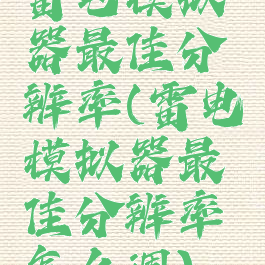 雷电模拟
器最佳分
辨率(雷电
模拟器最
佳分辨率
怎么调)